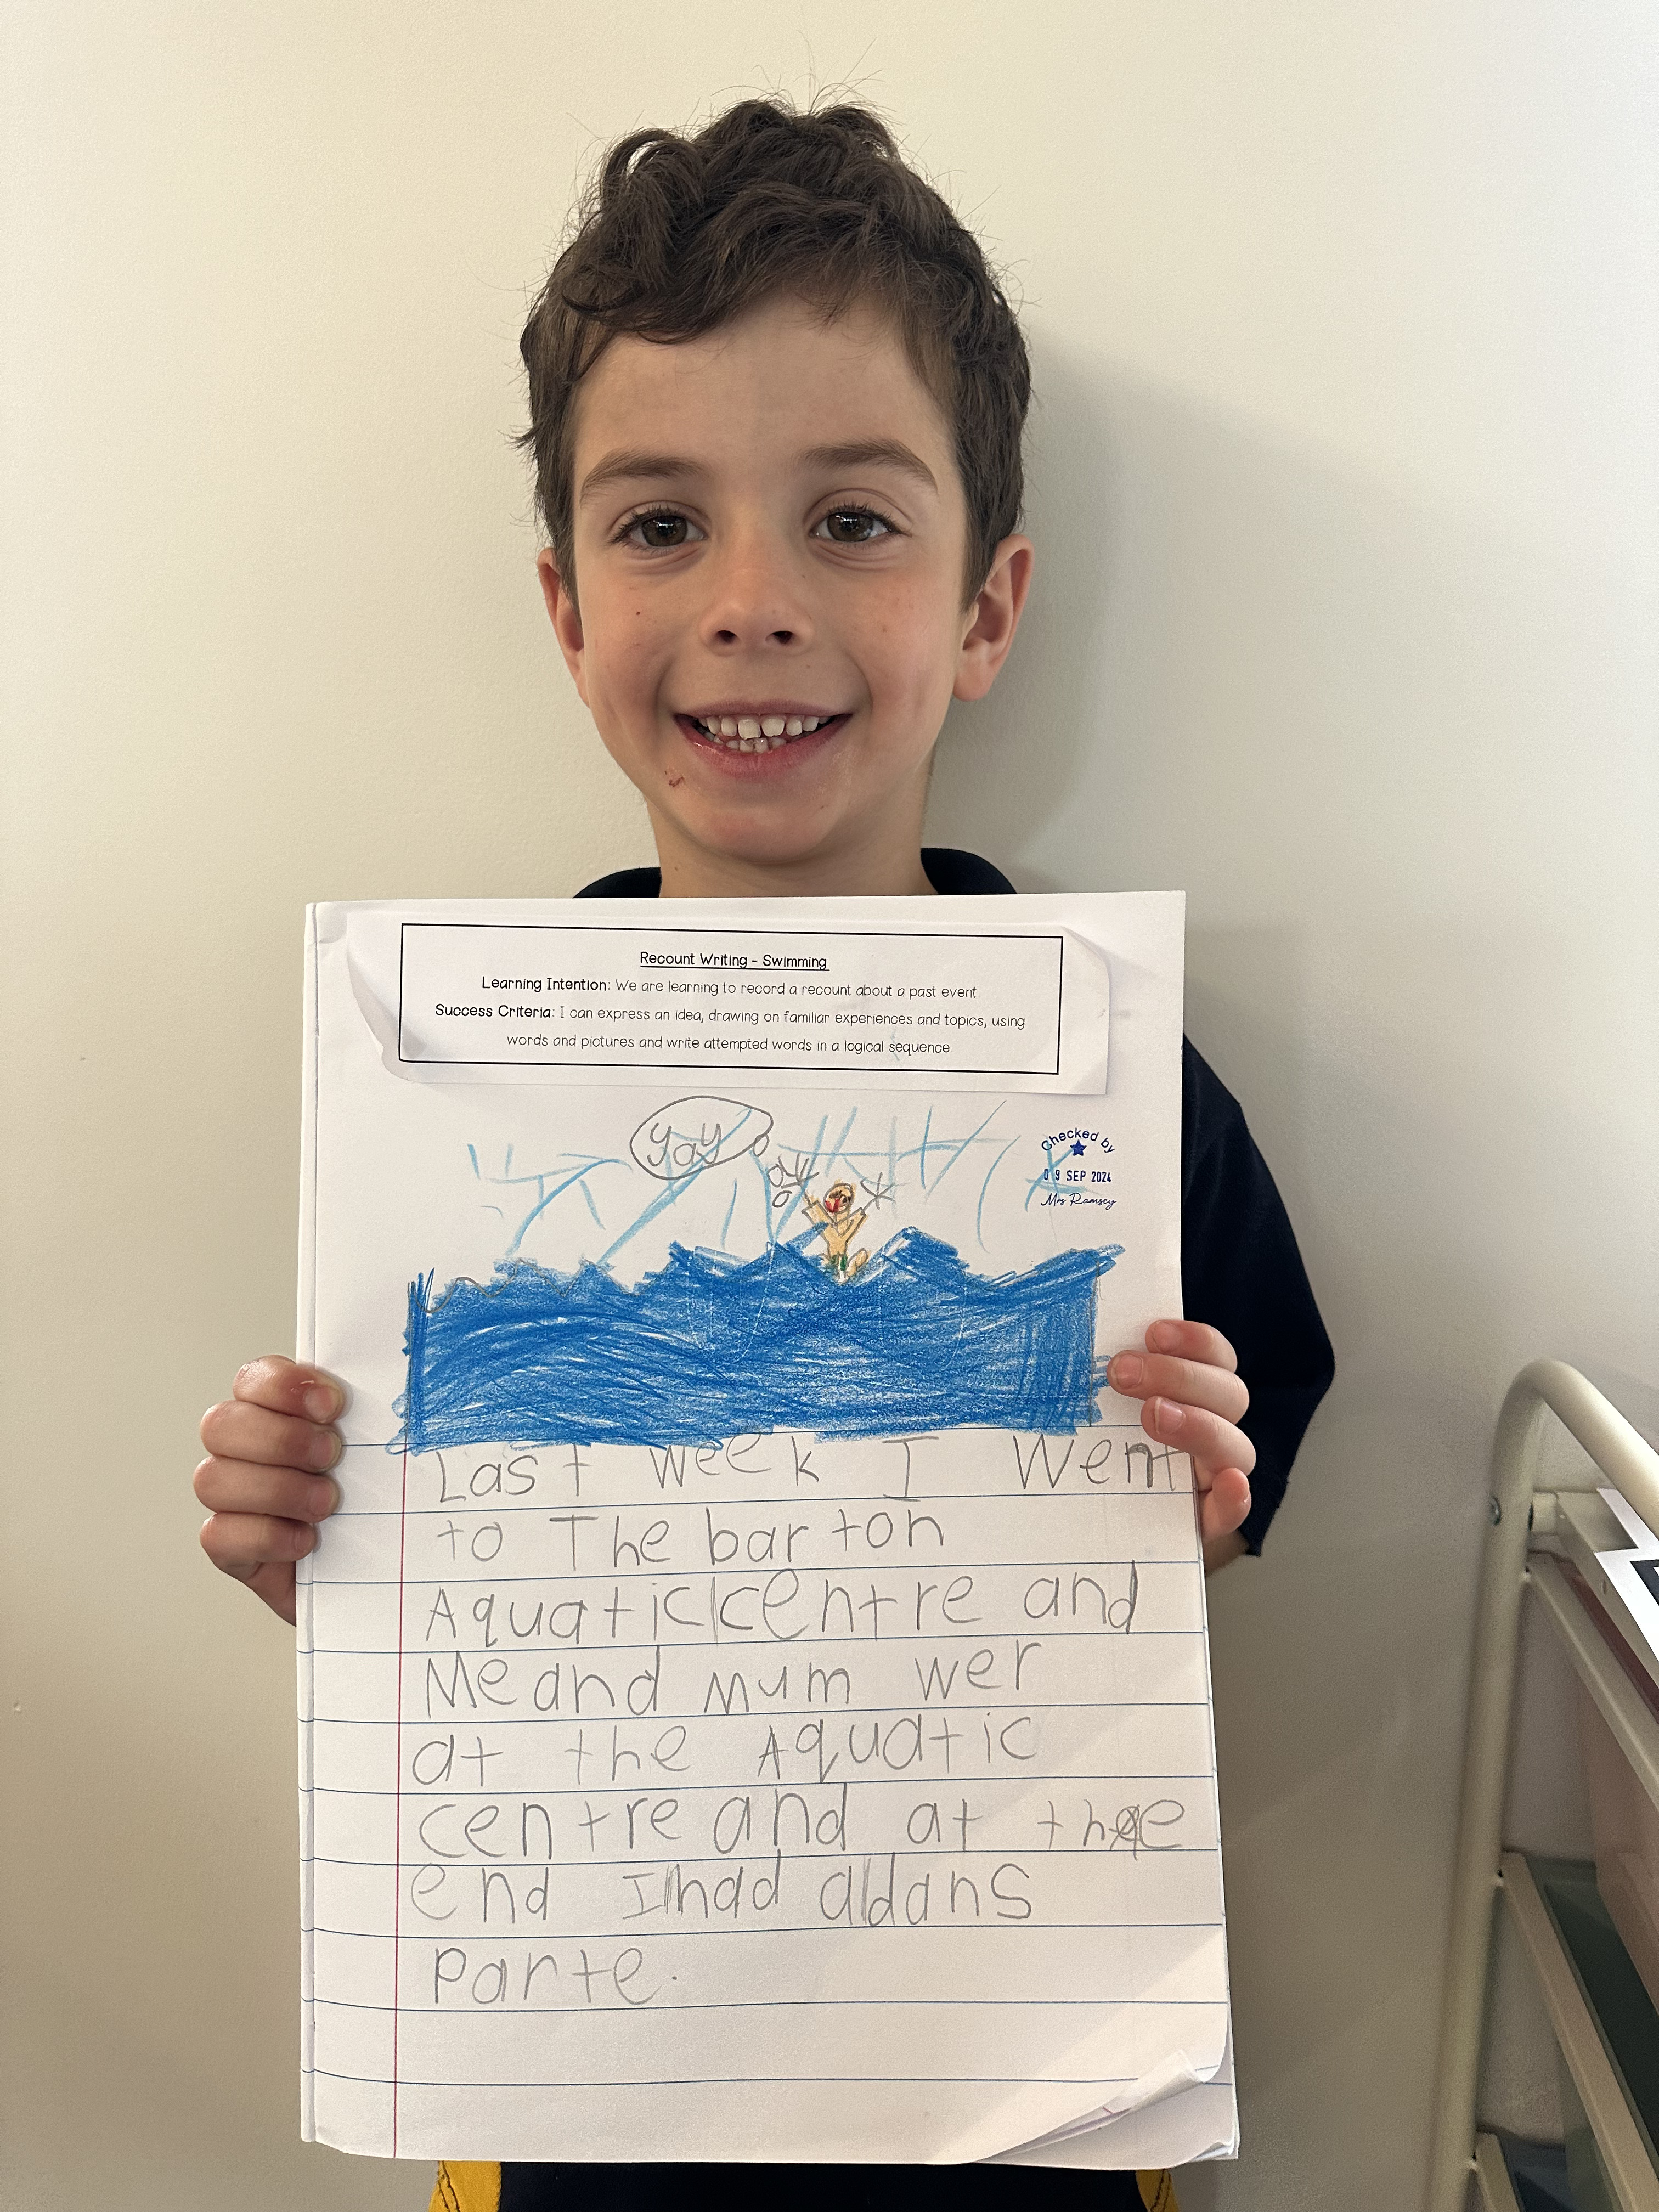 Recount Writing - Swimming
Learning Intention: We are learning to record a recount about a past event
Success Criteria: I can express an idea, drawing on familiar experiences and topics, using
words and pictures and write attempted words in a logical sequence
yay
Checked by
09 SEP 2024
Mrs Ramsey
Last week I Went
to The barton
Aquatic centre and
Me and mum wer
at the Aquatic
centre and at the
end I had a dans
Parte.